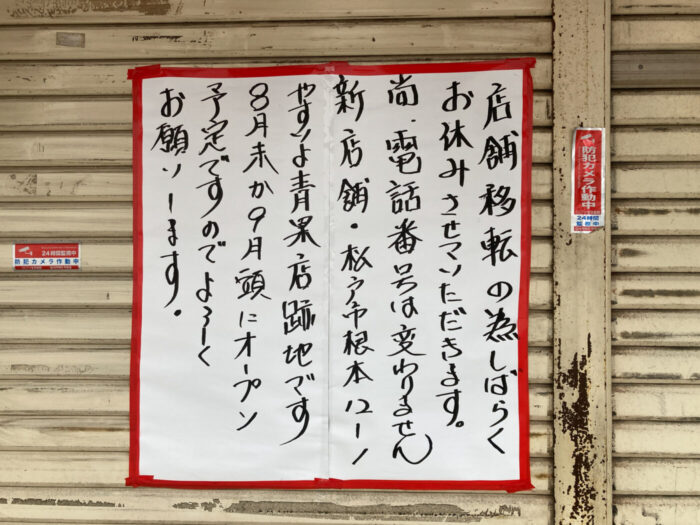 店舗移転の為しばらく
お休みさせていただきます。
尚、電話番号は変わりません
新店舗・松戸市根本12-1
やすよ青果店跡地です
8月末か9月頭にオープン
予定ですのでよろしく
お願いします。
防犯カメラ作動中
24時間
監視中
24時間監視中
防犯カメラ作動中